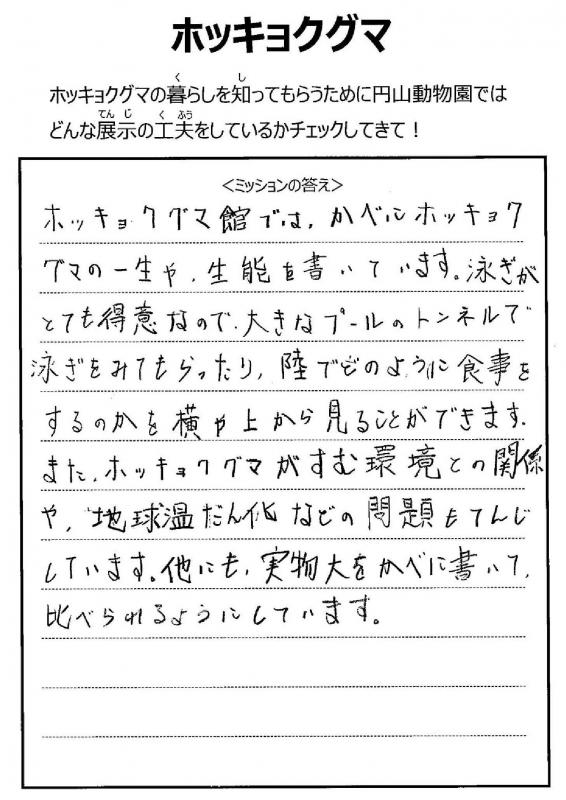 ホッキョクグマ
ホッキョクグマの暮らしを知ってもらうために円山動物園では
どんな展示の工夫をしているかチェックしてきて！
<ミッションの答え>
ホッキョクグマ館では、かべにホッキョク
グマの一生や、生能を書いています。泳ぎが
とても得意なので、大きなプールのトンネルで
泳ぎをみてもらったり、陸でどのように食事を
するのかを横や上から見ることができます。
また、ホッキョクグマがすむ環境との関係
や、地球温だん化などの問題もてんじ
しています。他にも、実物大をかべに書いて、
比べられるようにしています。